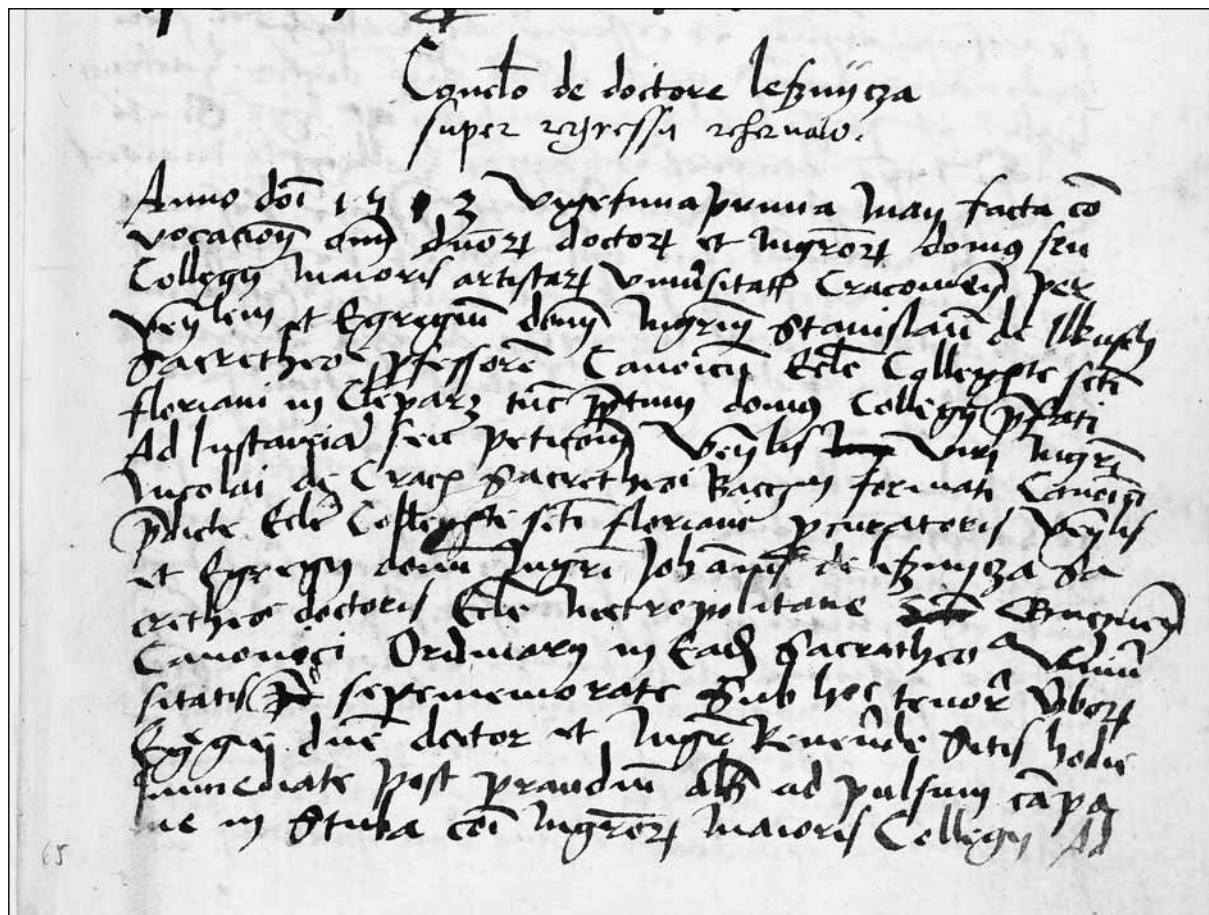 Conclo de doctore lesznycza
super regressu reservato.
Anno doi 1513 vigesimaprima Maij facta co
vocacion omn dnorum doctorum et mgrorum domus seu
Collegij maioris artistarum universitatis Cracovien per
venlem et Egregium domn mgrm Stanislaum de Ilkusch
Sacretheo professorem Canoicum Ecle Collegate scti
floriani in Cleparz tunc domus Collegij prefati
Ad Instanciam seu peticom venlis viri mgri
Nicolai de Crac Sacretheoi Baccij formati Canoici
pdicte Ecle Collegate scti floriani procuratoris venlis
et Egregij domi mgri Johannis de lesznycza Sa
cretheo doctoris Ecle metropolitane
Canonici Ordinarij in Ead Sacratheo a Univer
sitatis sepememorate Sub hoc tenore verborum
Egregie dne doctor et mgr Reverende Sitis hodie
immediate post prandium ad pulsum campa
ne in Stuba coi mgrorum maioris Collegij Ad
65